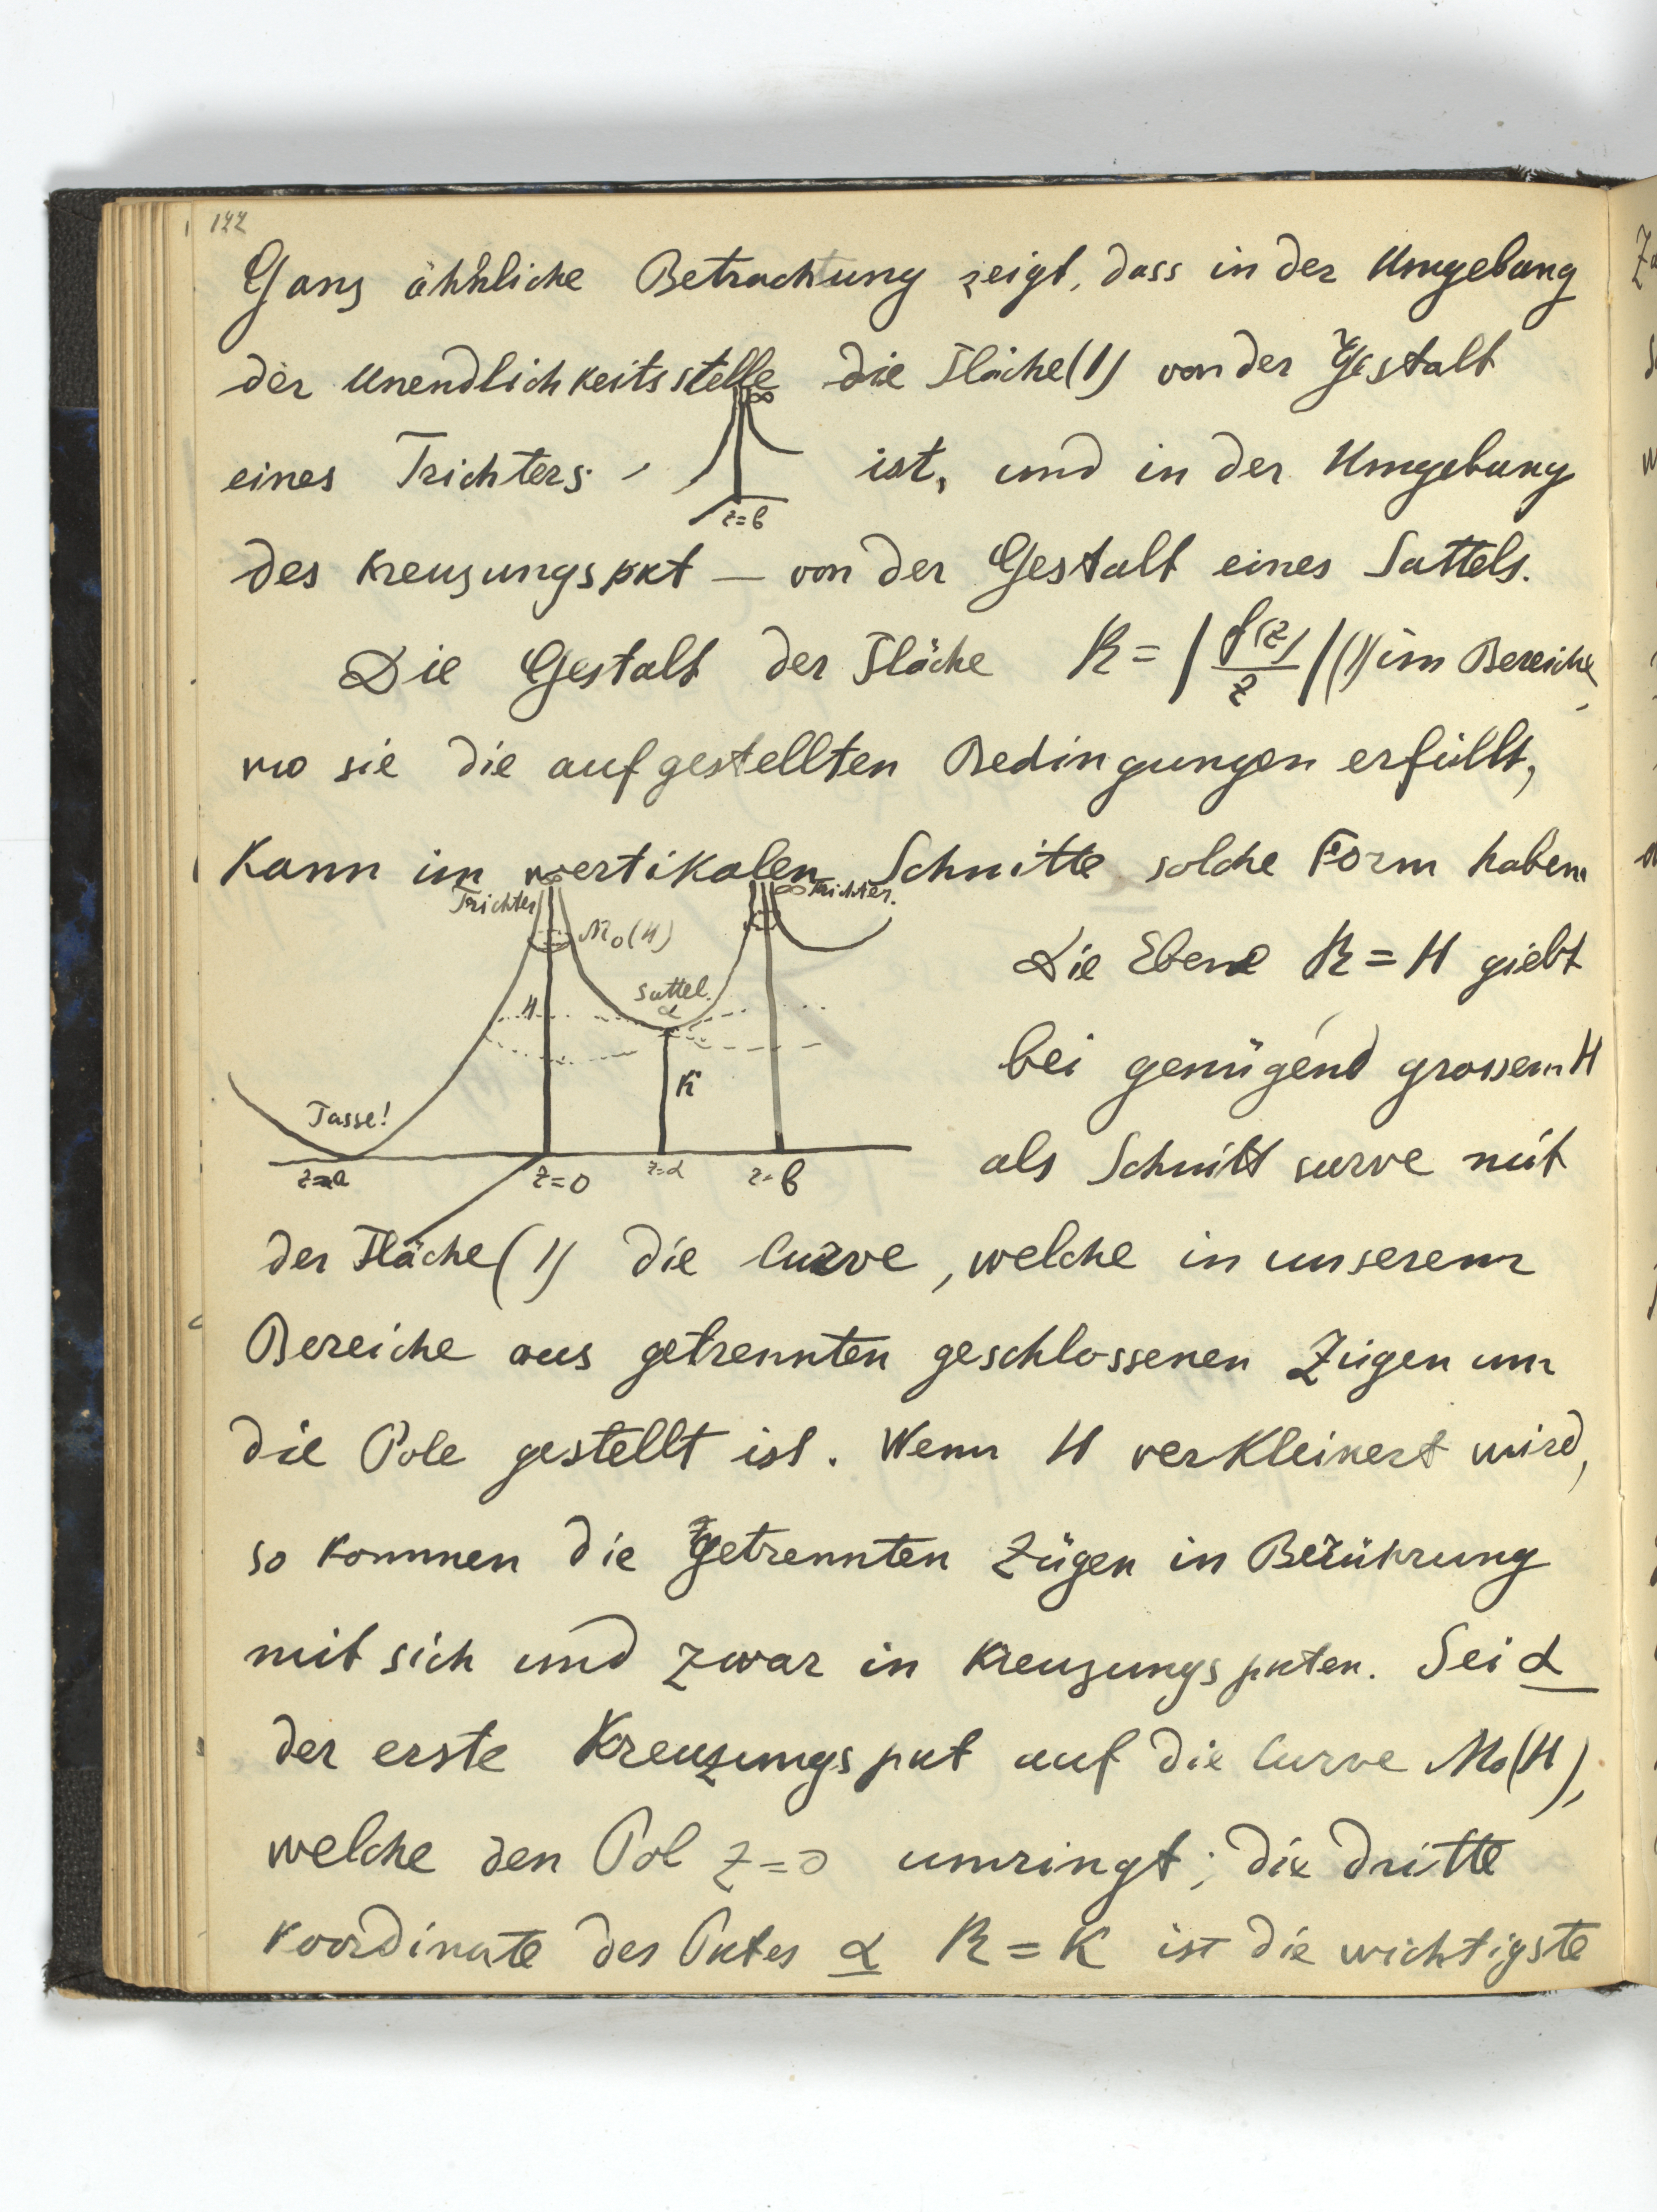 122
Ganz ähnliche Betrachtung zeigt, dass in der Umgebung
der Unendlichkeitsstelle die Fläche (1) von der Gestalt
∞
eines Trichters ist, und in der Umgebung
z=b
des Kreuzungspkt — von der Gestalt eines Sattels.
Die Gestalt der Fläche R = |f(z)/z| (1) im Bereiche,
wo sie die aufgestellten Bedingungen erfüllt,
kann im vertikalen Schnitte solche Form haben
Trichter ∞ ∞ Trichter.
M₀(H)
Sattel.
α
H
K
Tasse!
z=a z=0 z=α z=b
Die Ebene R = H giebt
bei genügend grossem H
als Schnitt curve mit
der Fläche (1) die Curve, welche in unserem
Bereiche aus getrennten geschlossenen Zügen um
die Pole gestellt ist. Wenn H verkleinert wird,
so kommen die getrennten Zügen in Berührung
mit sich und zwar in Kreuzungspkten. Sei α
der erste Kreuzungspkt auf die Curve M₀(H),
welche den Pol z=0 umringt; die dritte
Koordinate des Pktes α R = K ist die wichtigste